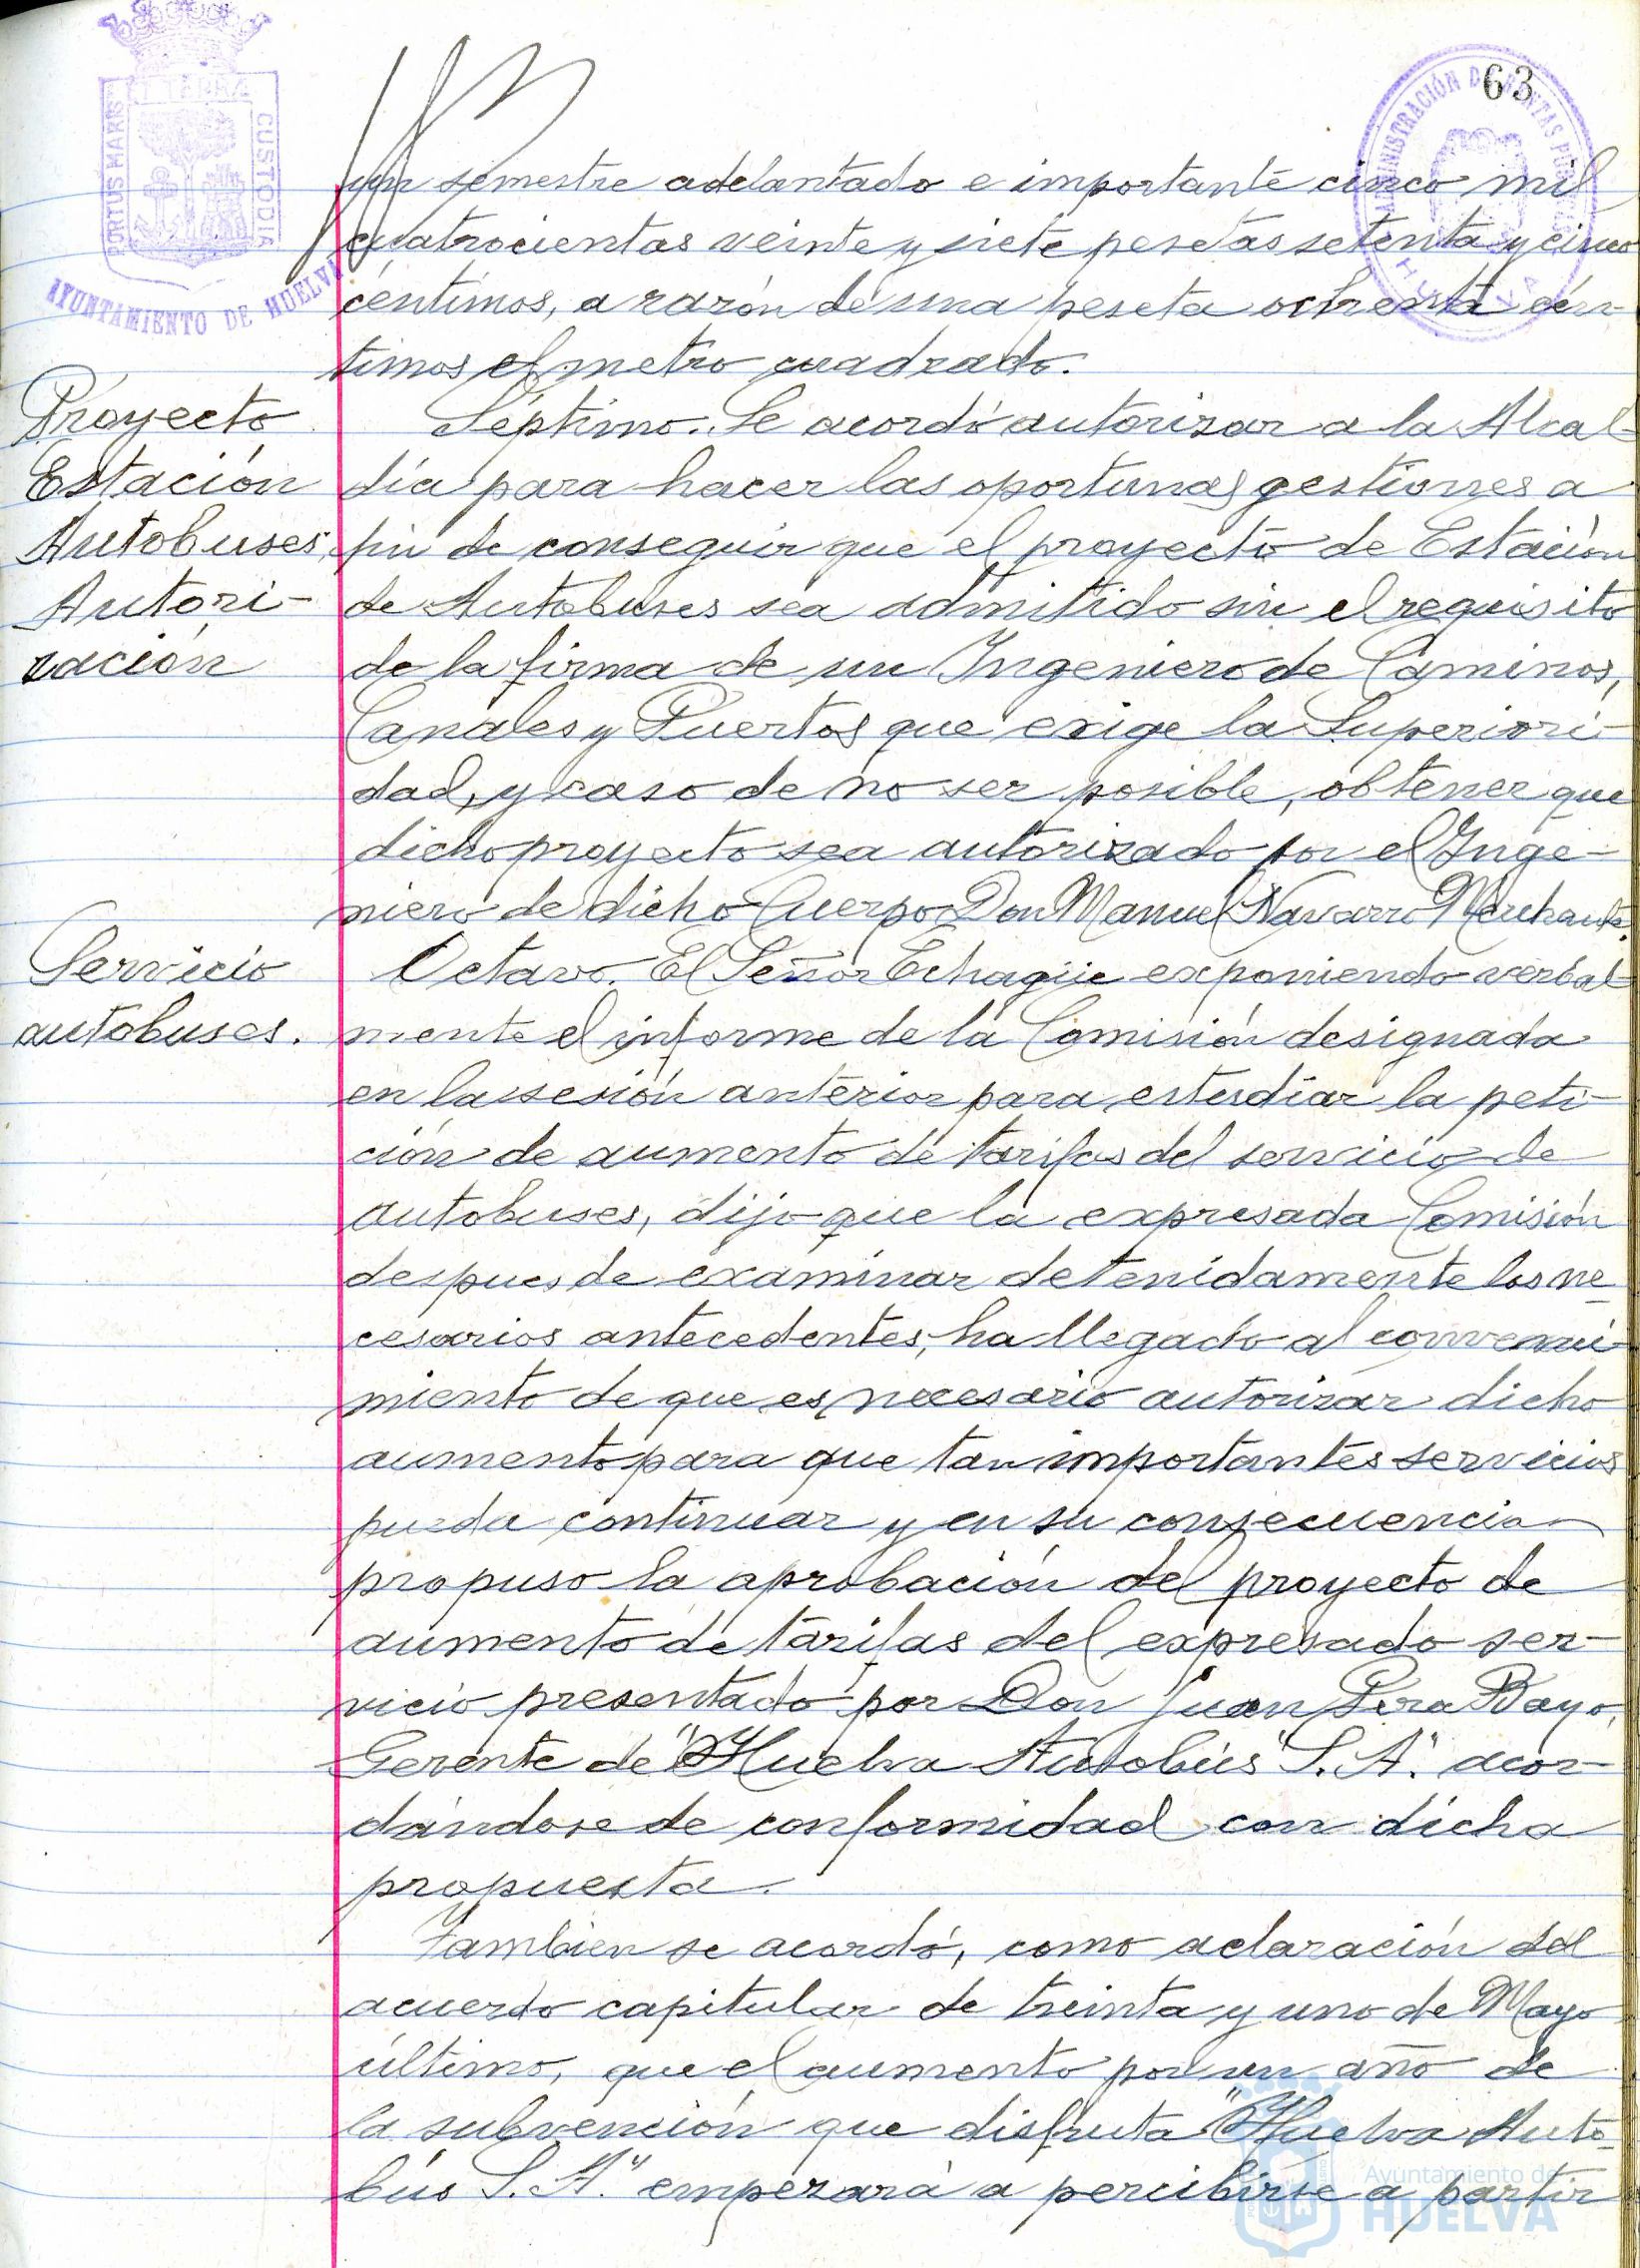 63
PORTUS MARIS ET TERRA CUSTODIA
AYUNTAMIENTO DE HUELVA
ADMINISTRACIÓN DE RENTAS PÚBLICAS
HUELVA
un semestre adelantado e importante cinco mil
cuatrocientas veinte y siete pesetas setenta y cinco
céntimos, a razón de una peseta ochenta cén-
timos el metro cuadrado.
Proyecto
Estación
Autobuses.
Autori-
zación
Séptimo. Se acordó autorizar a la Alcal-
día para hacer las oportunas gestiones a
fin de conseguir que el proyecto de Estación
de Autobuses sea admitido sin el requisito
de la firma de un Ingeniero de Caminos,
Canales y Puertos que exige la Superiori-
dad, y caso de no ser posible, obtener que
dicho proyecto sea autorizado por el Inge-
niero de dicho Cuerpo Don Manuel Navarro
Servicio
autobuses.
Octavo. El Señor Echagüe exponiendo verbal-
mente el informe de la Comisión designada
en la sesión anterior para estudiar la peti-
ción de aumento de tarifas del servicio de
autobuses, dijo que la expresada Comisión
despues de examinar detenidamente los ne-
cesarios antecedentes, ha llegado al convenci-
miento de que es necesario autorizar dicho
aumento para que tan importantes servicios
pueda continuar y en su consecuencia
propuso la aprobación del proyecto de
aumento de tarifas del expresado ser-
vicio presentado por Don Juan Pera Bayo,
Gerente de "Huelva Autobús S. A." acor-
dándose de conformidad con dicha
propuesta.
Tambien se acordó, como aclaración del
acuerdo capitular de treinta y uno de Mayo
último, que el aumento por un año de
la subvención que disfruta "Huelva Auto-
bús S. A." empezará a percibirse a partir
Ayuntamiento de
HUELVA